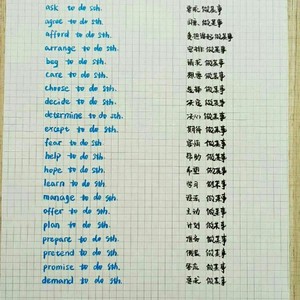 ask to do sth. 要求 做某事
agree to do sth. 同意 做某事
afford to do sth. 做某事
arrange to do sth. 安排 做某事
beg to do sth. 请求 做某事
care to do sth. 想要 做某事
choose to do sth. 选择 做某事
decide to do sth. 决定 做某事
determine to do sth. 决心 做某事
except to do sth. 期待 做某事
fear to do sth 害怕 做某事
help to do sth. 帮助 做某事
hope to do sth. 希望 做某事
learn to do sth 学习 做某事
manage to do sth. 设法 做某事
offer to do sth. 主动 做某事
plan to do sth. 计划 做某事
prepare to do sth. 准备 做某事
pretend to do sth. 假装 做某事
promise to do sth. 答应 做某事
demand to do sth. 要求 做某事